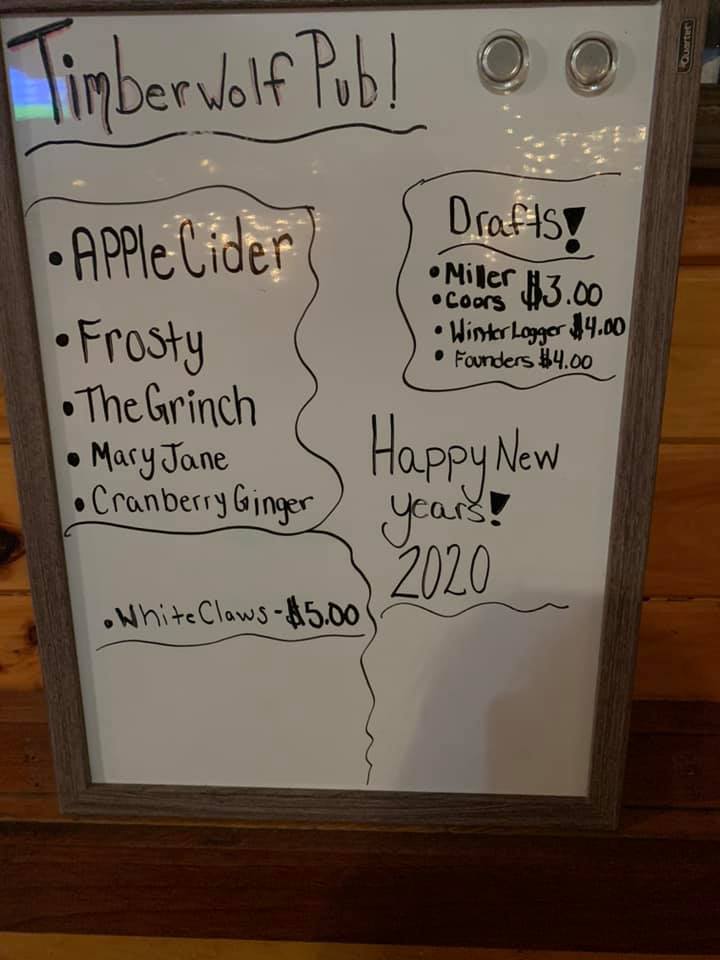 Timberwolf Pub!
Quartet
• Apple Cider
• Frosty
• The Grinch
• Mary Jane
• Cranberry Ginger
• White Claws - $5.00
Drafts!
• Miller
• Coors $3.00
• Winter Logger $4.00
• Founders $4.00
Happy New
years!
2020